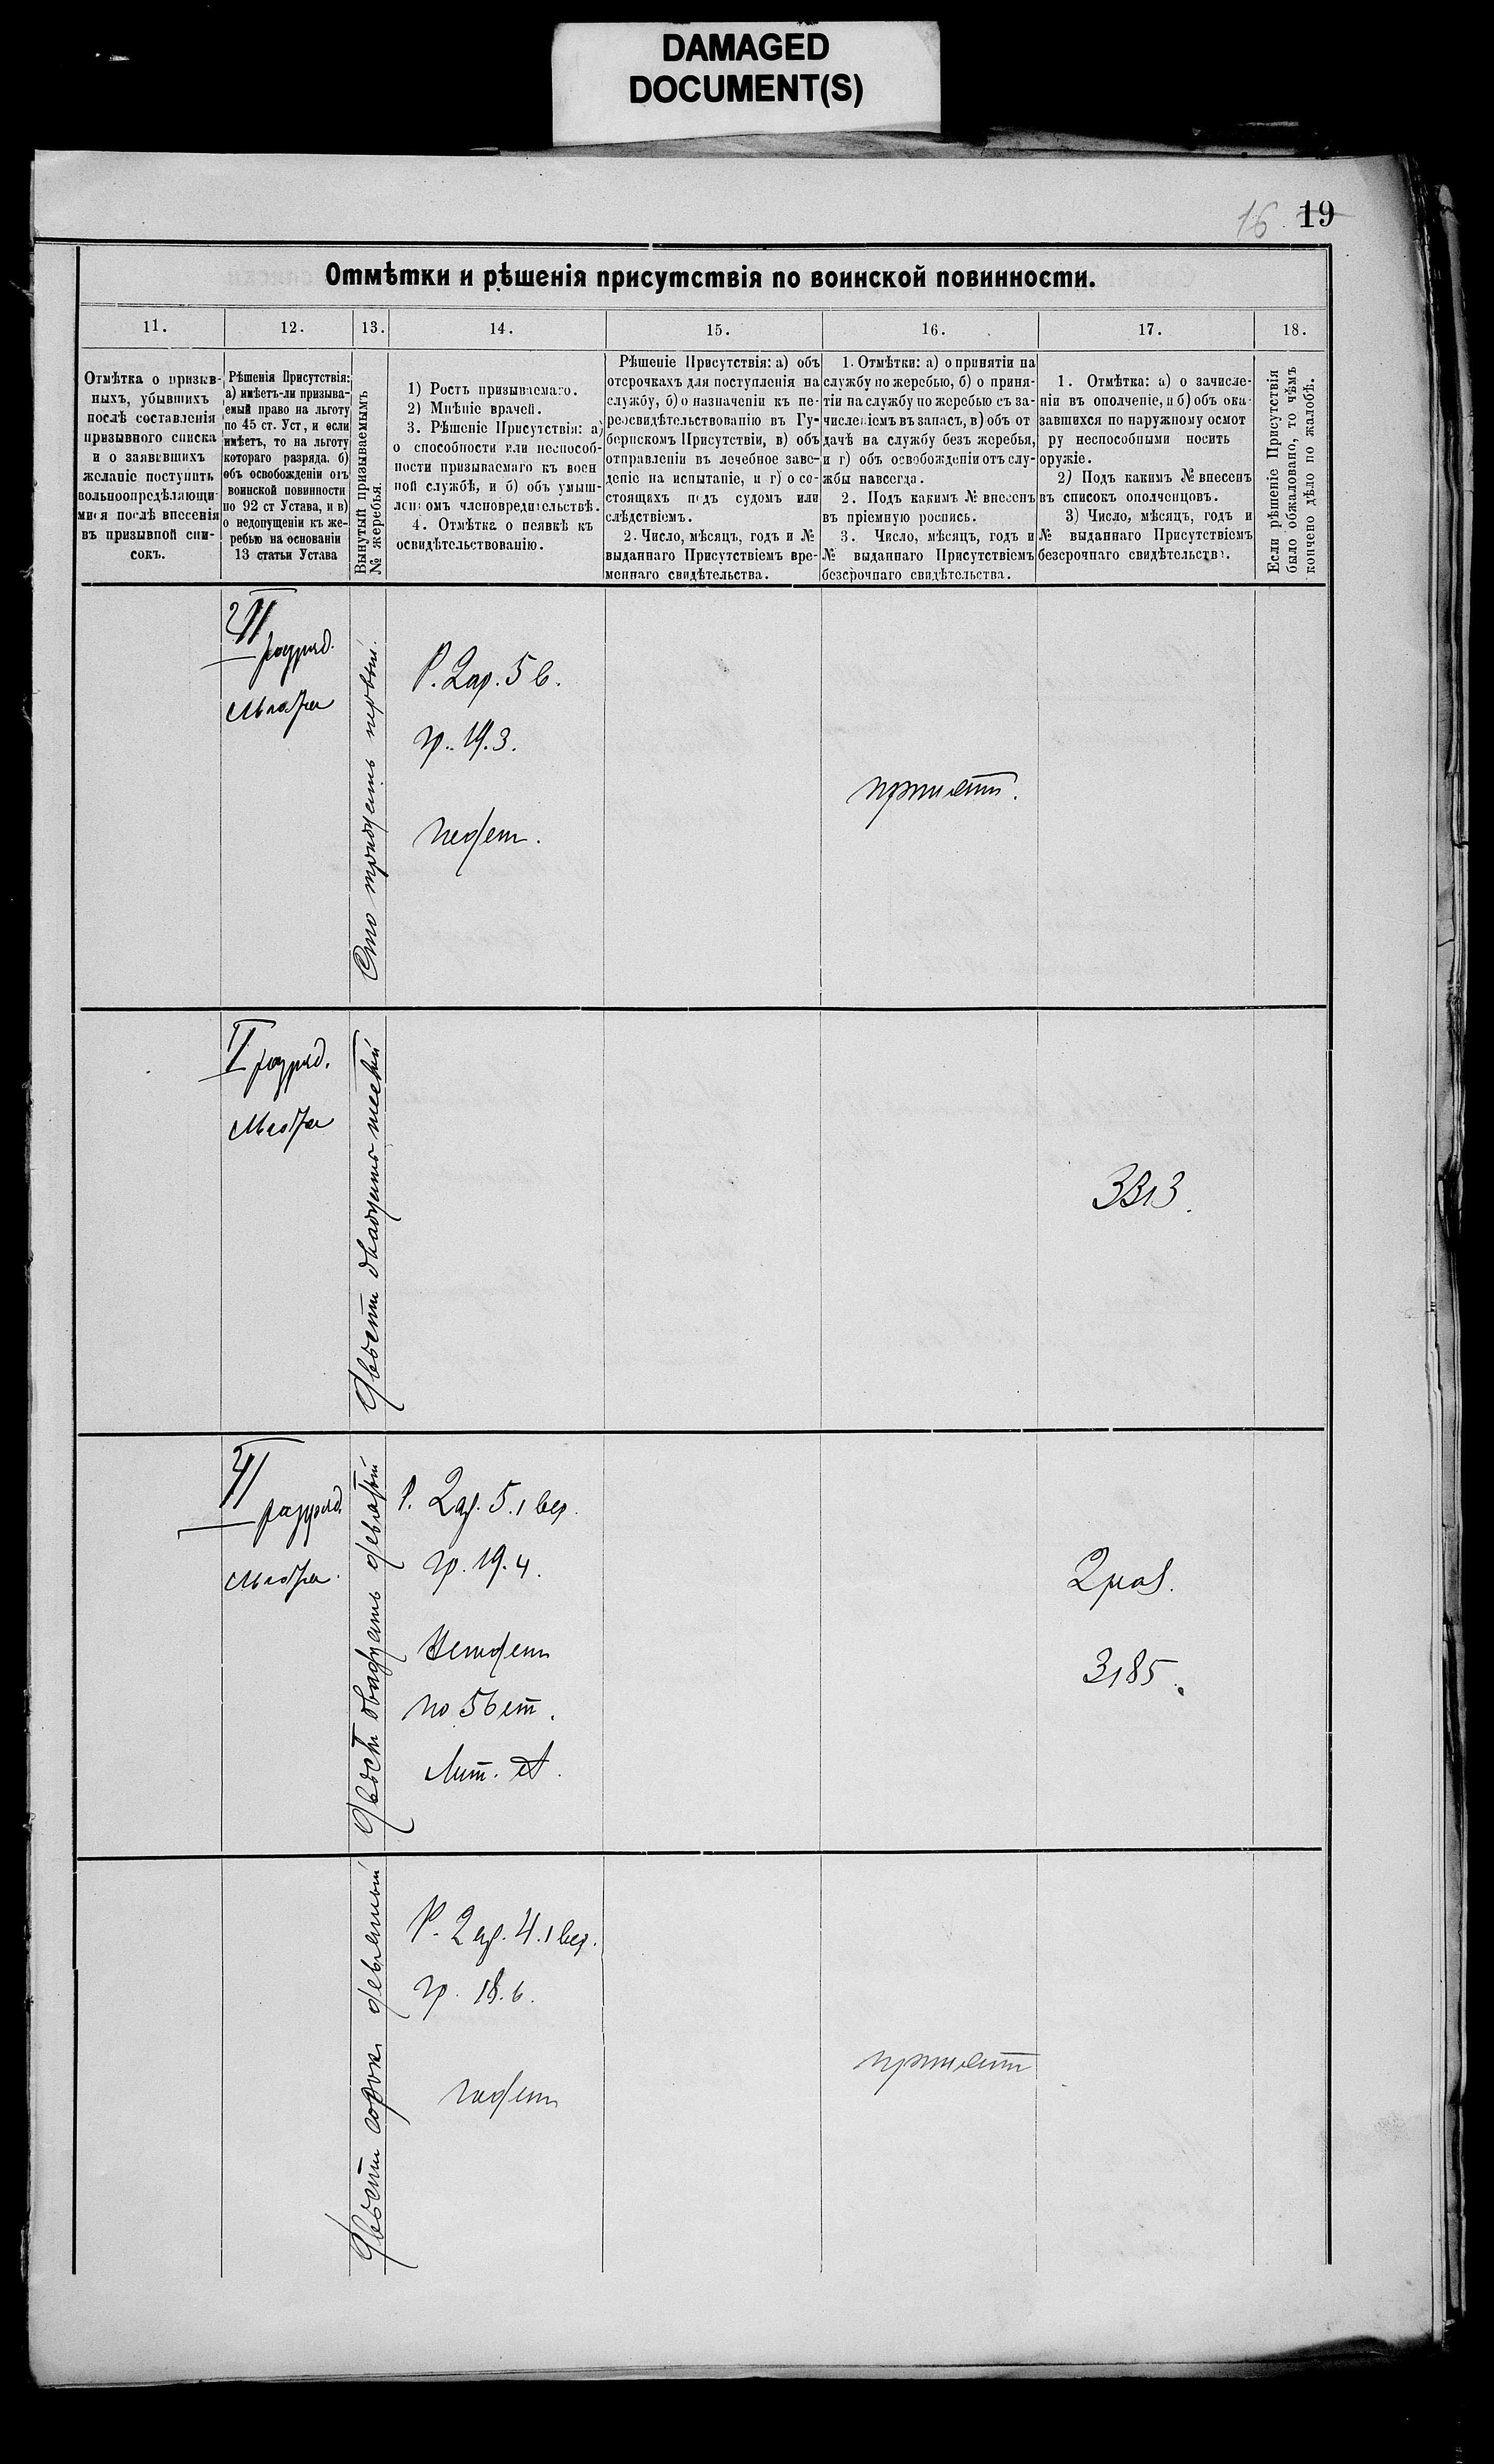 DAMAGED
DOCUMENT(S)
16 19
Отмѣтки и рѣшенія присутствія по воинской повинности.
11. 12. 13. 14. 15. 16. 17. 18.
Отмѣтка о призыв-
ныхъ, убывшихъ
послѣ составленія
призывного списка
и о заявившихъ
желаніе поступить
вольноопредѣляющи-
мися послѣ внесенія
въ призывной спи-
сокъ.
Рѣшенія Присутствія:
а) имѣетъ-ли призыва-
емый право на льготу
по 45 ст. Уст, и если
имѣетъ, то на льготу
котораго разряда. б)
объ освобожденіи отъ
воинской повинности
по 92 ст Устава, и в)
о недопущеніи къ же-
ребью на основаніи
13 статьи Устава
Вынутый призываемымъ
№ жеребья.
1) Ростъ призываемаго.
2) Мнѣніе врачей.
3. Рѣшеніе Присутствія: а)
о способности или неспособ-
ности призываемаго къ воен
ной службѣ, и б) объ умыш-
ленномъ членовредительствѣ.
4. Отмѣтка о неявкѣ къ
освидѣтельствованію.
Рѣшеніе Присутствія: а) объ
отсрочкахъ для поступленія на
службу, б) о назначеніи къ пе-
реосвидѣтельствованію въ Гу-
бернскомъ Присутствіи, в) объ
отправленіи въ лечебное заве-
деніе на испытаніе, и г) о со-
стоящихъ подъ судомъ или
слѣдствіемъ.
2. Число, мѣсяцъ, годъ и №
выданнаго Присутствіемъ вре-
меннаго свидѣтельства.
1. Отмѣтки: а) о принятіи на
службу по жеребью, б) о приня-
тіи на службу по жеребью съ за-
численіемъ въ запасъ, в) объ от
дачѣ на службу безъ жеребья,
и г) объ освобожденіи отъ слу-
жбы навсегда.
2. Подъ какимъ № внесенъ
въ пріемную роспись.
3. Число, мѣсяцъ, годъ и
№ выданнаго Присутствіемъ
безсрочнаго свидѣтельства.
1. Отмѣтка: а) о зачисле-
ніи въ ополченіе, и б) объ ока-
завшихся по наружному осмот
ру неспособными носить
оружіе.
2) Подъ какимъ № внесенъ
въ списокъ ополченцовъ.
3) Число, мѣсяцъ, годъ и
№ выданнаго Присутствіемъ
безсрочнаго свидѣтельства.
Если рѣшеніе Присутствія
было обжаловано, то чѣмъ
кончено дѣло по жалобѣ.
II
разряд.
льгота
Сто тридцать первый.
Р. 2 ар. 5 в.
гр. 19.3.
годен.
принят.
I разряд.
льгота
Двести двадцать шестый
3313.
II
разряд
льгота.
Двести двадцать девятый
Р. 2 ар. 5.1 вер.
гр. 19.4.
Негоден
по 56 ст.
Лит. А.
2 раз.
3185.
Двести сорок девятый
Р. 2 ар. 4.1 вер.
гр. 18.6.
годен
принят